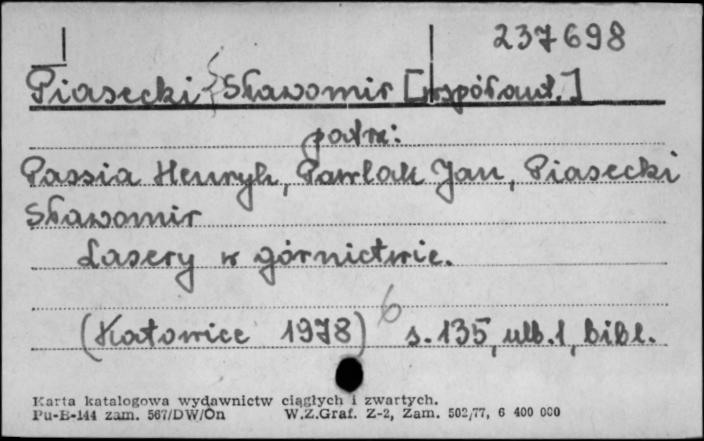 237698
Piasecki Sławomir [współaut.]
patrz:
Passia Henryk, Pawlak Jan, Piasecki
Sławomir
Lasery w górnictwie.
(Katowice 1978) 6 s. 135, ulb. 1, bibl.
Karta katalogowa wydawnictw ciągłych i zwartych.
Pu-B-144 zam. 567/DW/On W.Z.Graf. Z-2, Zam. 502/77, 6 400 000